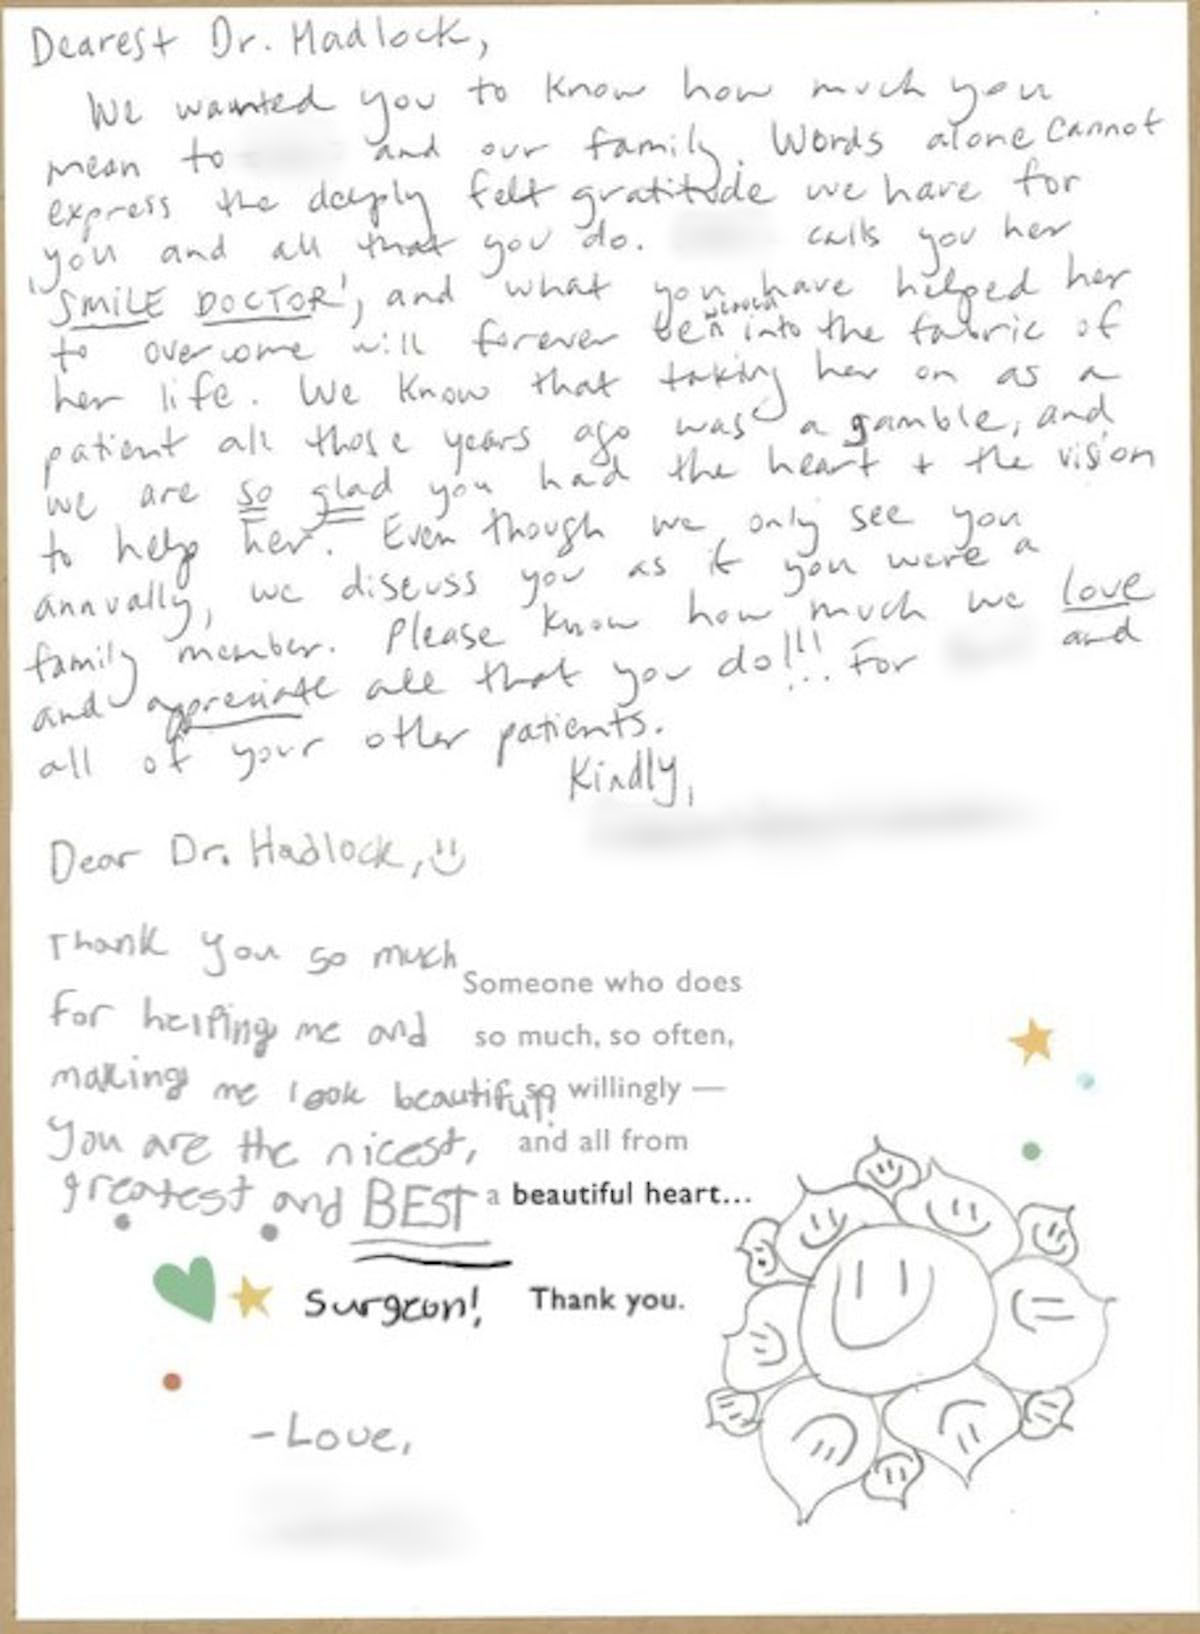 Dearest Dr. Hadlock,
We wanted you to know how much you
mean to and our family. Words alone cannot
express the deeply felt gratitude we have for
you and all that you do. calls you her
'SMILE DOCTOR', and what you have helped her
to overcome will forever be woven into the fabric of
her life. We know that taking her on as a
patient all those years ago was a gamble, and
we are so glad you had the heart + the vision
to help her. Even though we only see you
annually, we discuss you as if you were a
family member. Please know how much we love
and appreciate all that you do!!! For and
all of your other patients.
Kindly,
Dear Dr. Hadlock,
Thank you so much
for helping me and
making me look beautiful!
You are the nicest,
greatest and BEST
Surgeon!
Someone who does
so much, so often,
so willingly —
and all from
a beautiful heart...
Thank you.
-Love,